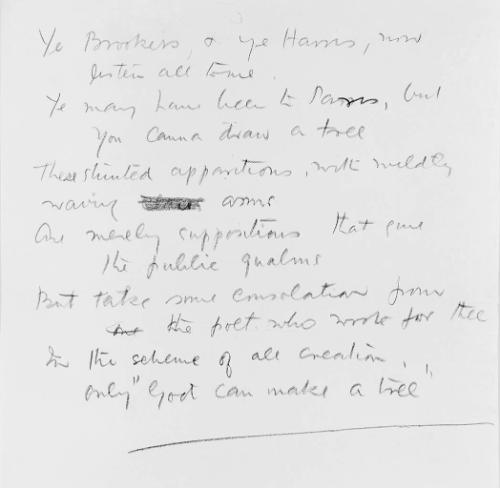 Ye Brookers, & ye Harris, now
listen all to me.
Ye may have been to Paris, but
you canna draw a tree
These stunted apparitions, with wildly
waving arms
Are merely suppositions that give
the public qualms
But take some consolation from
the poet who wrote for thee
In the scheme of all creation,
only "God can make a tree"